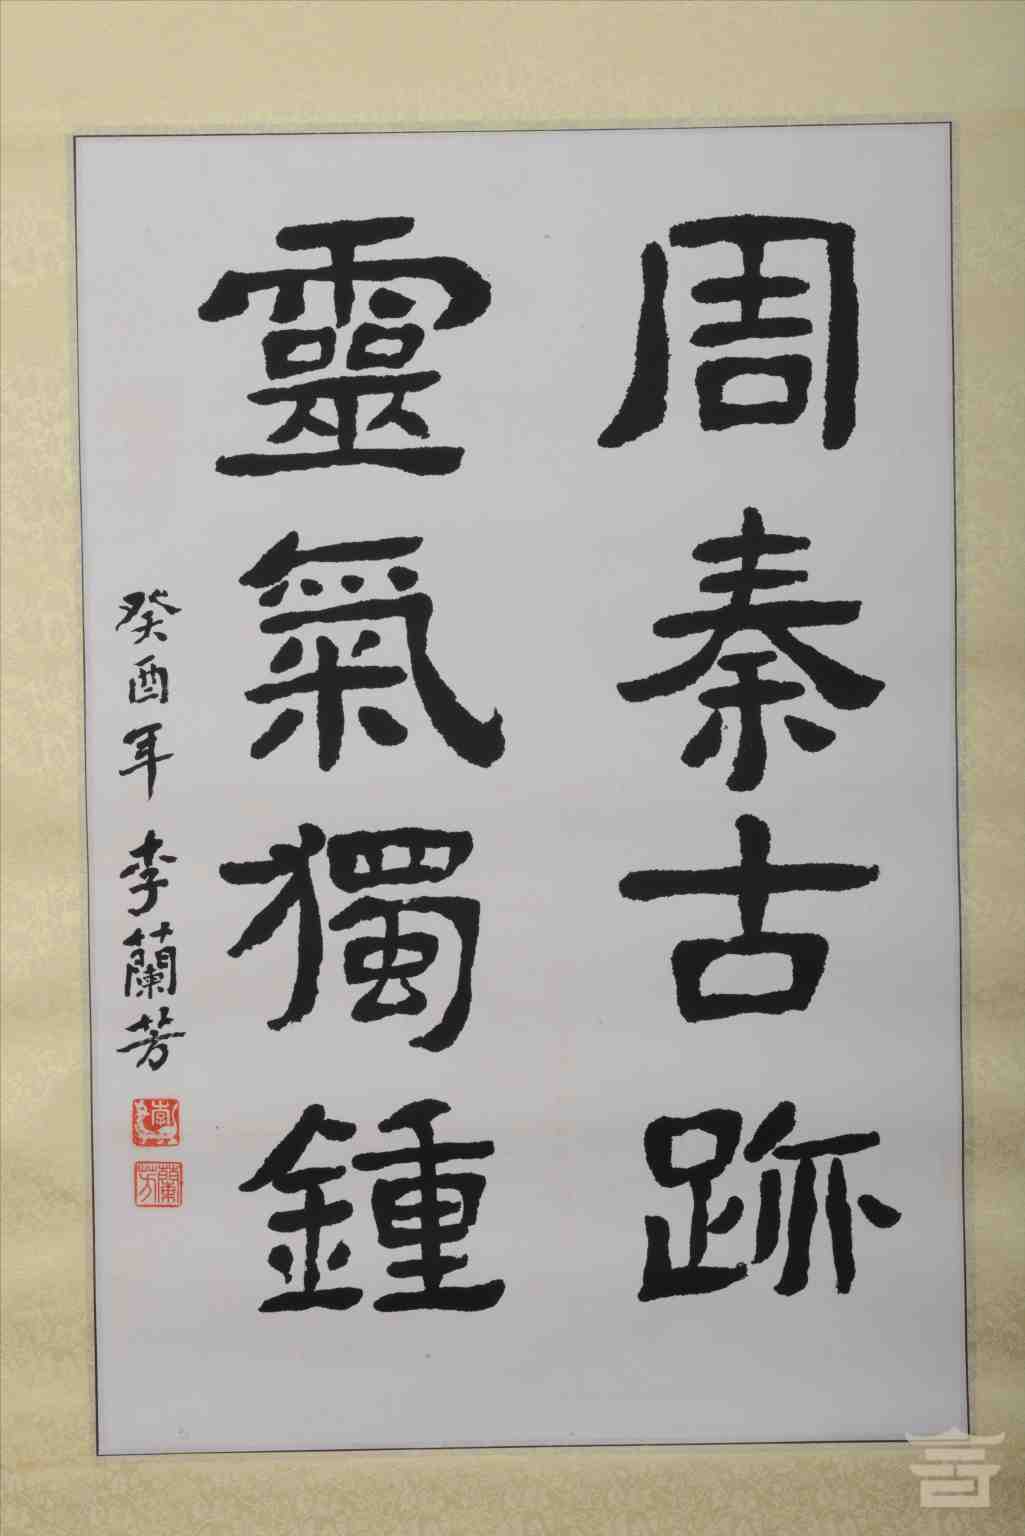 周秦古跡
靈氣獨鍾
癸酉年 李蘭芳
李
蘭芳